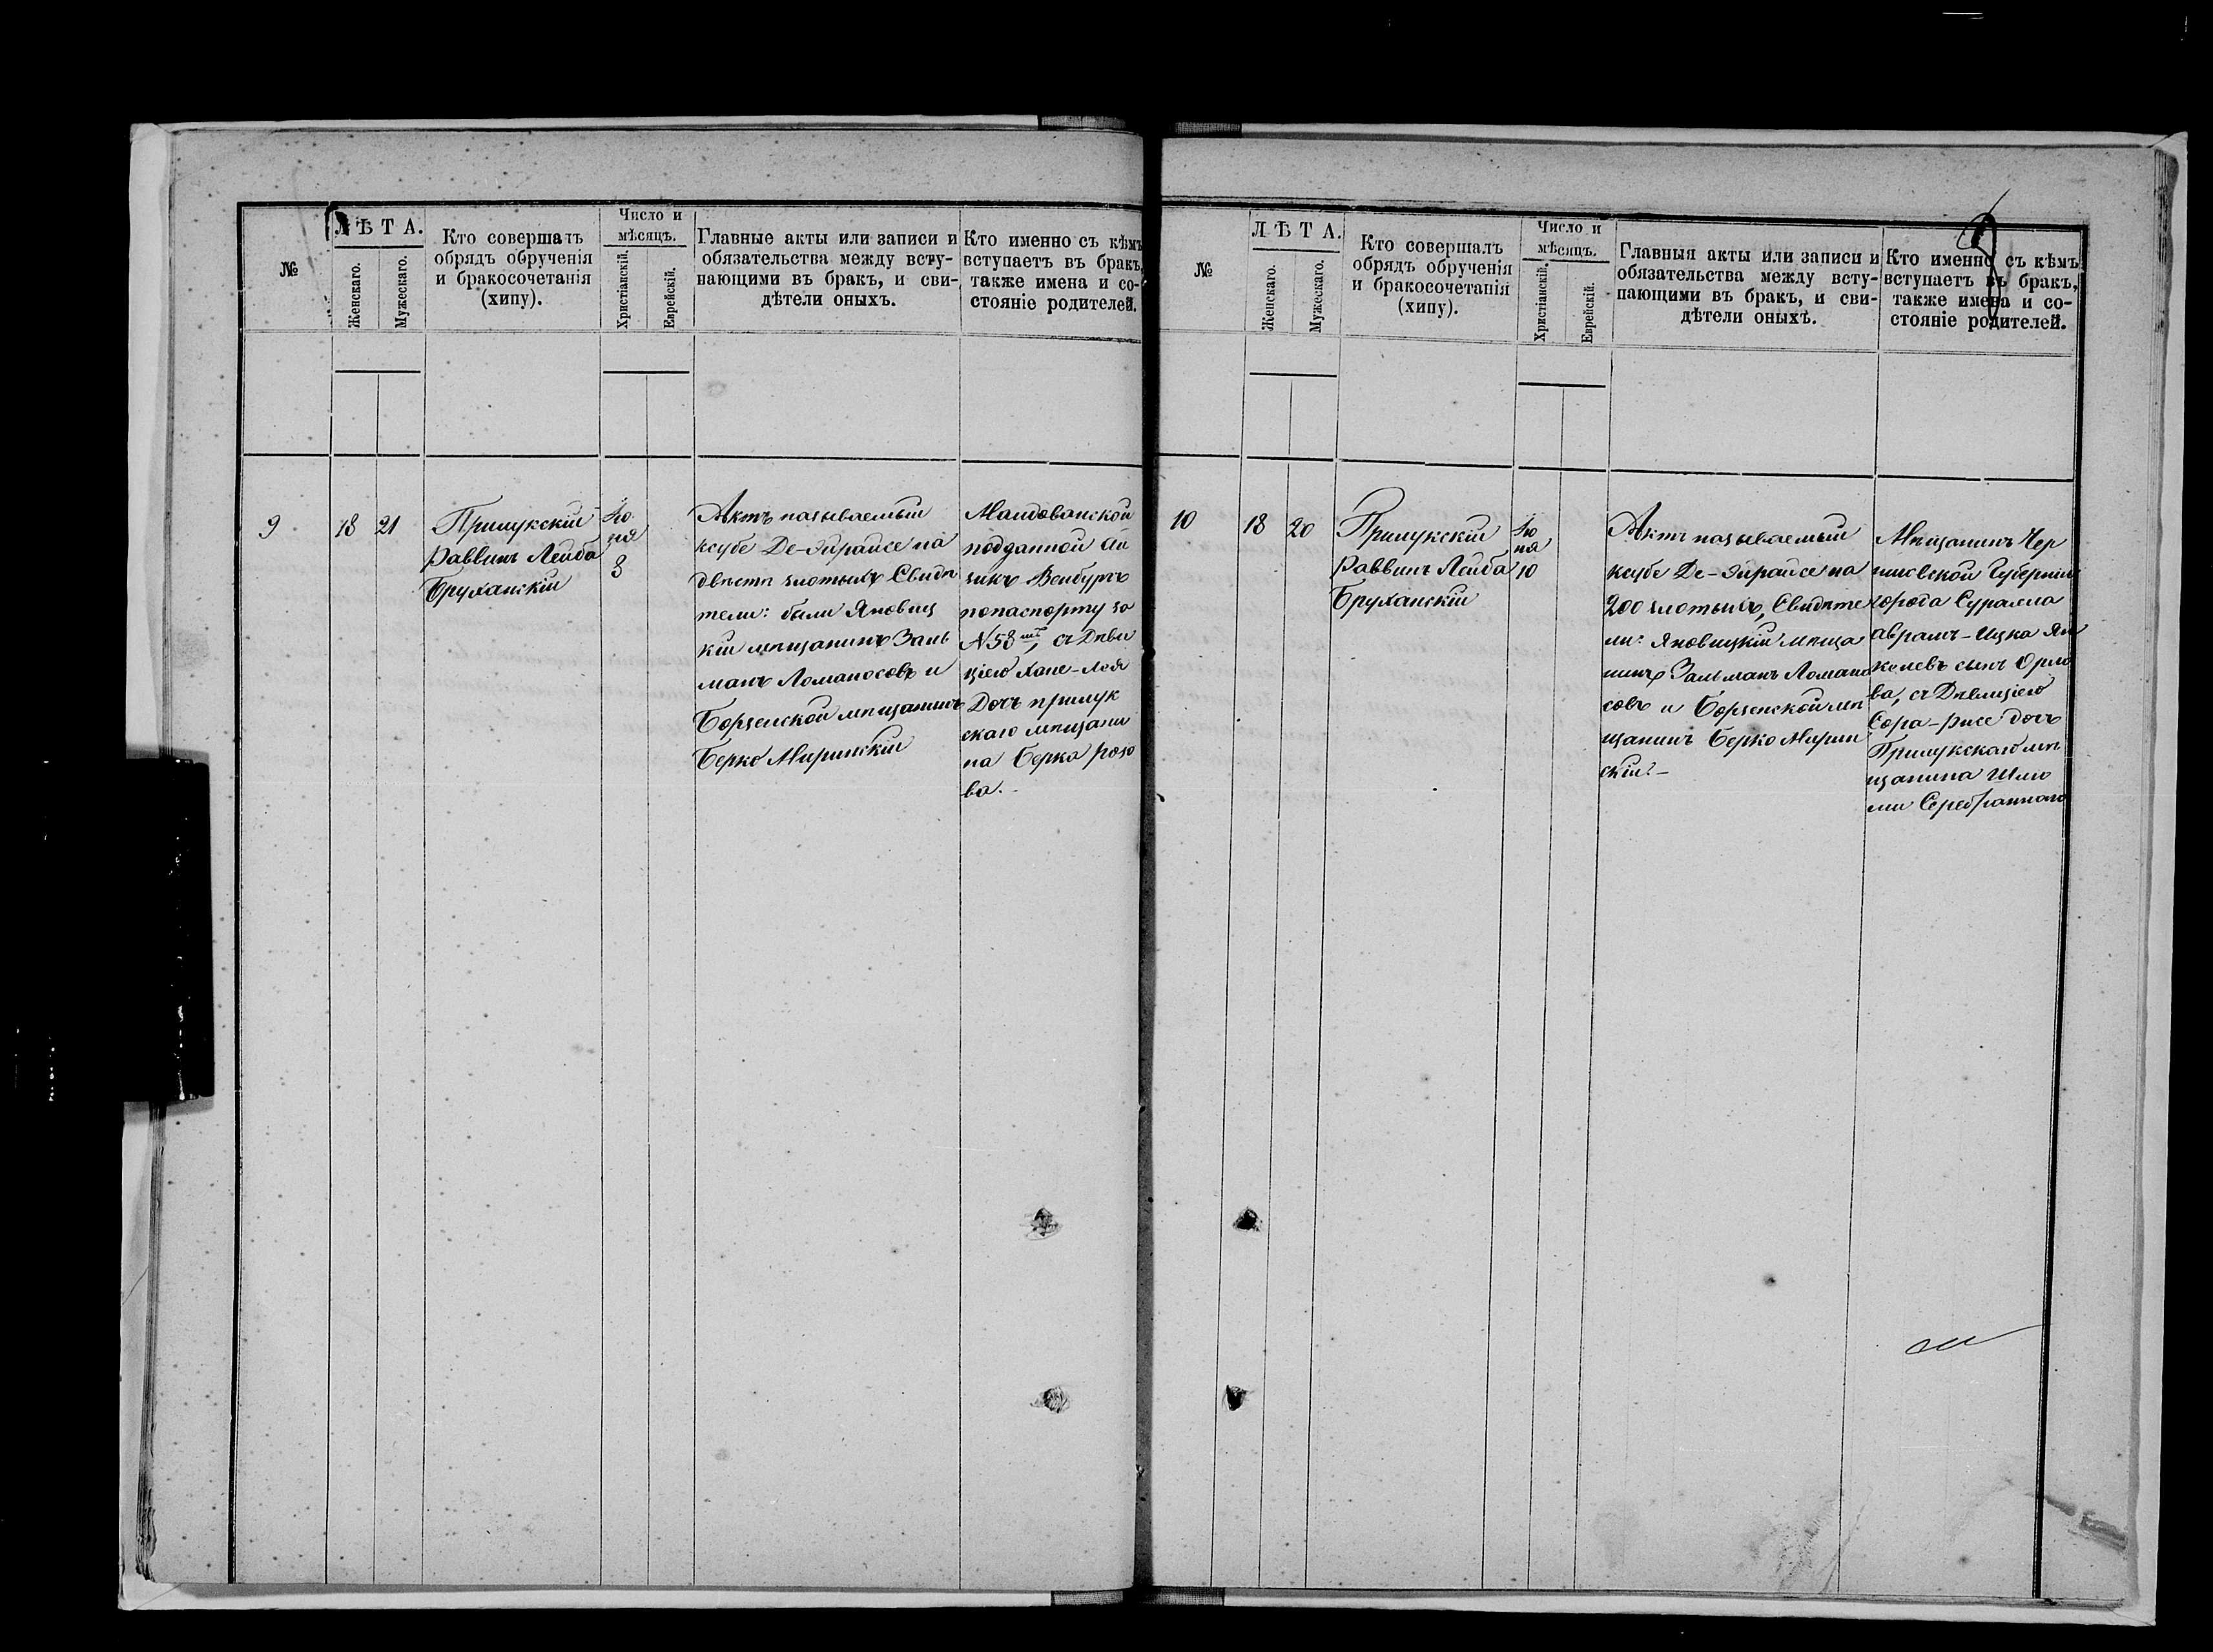 №
ЛѢТА.
Женскаго.
Мужескаго.
Кто совершалъ
обрядъ обрученія
и бракосочетанія
(хипу).
Число и
мѣсяцъ.
Христіанскій.
Еврейскій.
Главные акты или записи и
обязательства между всту-
пающими въ бракъ, и сви-
дѣтели оныхъ.
Кто именно съ кѣмъ
вступаетъ въ бракъ,
также имена и со-
стояніе родителей.
9
18
21
Прилукскій
Раввинъ Лейба
Бруханскій
Ію
ня
8
Актъ называемый
ксубе Де-Эйрайсе на
двѣстѣ злотыхъ Свидѣ
тели: были Яновиц
кій мѣщанинъ Заль
манъ Ломаносовъ и
Борзенской мѣщанинъ
Берко Миринскій
подданной
Венбургъ
попаспорту за
N 58, съ Дѣви
цiею Хане-Хая
Дочъ прилук
скаго мѣщани
на Берка Розо
ва.
№
ЛѢТА.
Женскаго.
Мужескаго.
Кто совершалъ
обрядъ обрученія
и бракосочетанія
(хипу).
Число и
мѣсяцъ.
Христіанскій.
Еврейскій.
Главныя акты или записи и
обязательства между всту-
пающими въ бракъ, и сви-
дѣтели оныхъ.
Кто именно съ кѣмъ
вступаетъ въ бракъ,
также имена и со-
стояніе родителей.
10
18
20
Прилукскій
Раввинъ Лейба
Бруханскій
Ію
ня
10
Актъ называемый
ксубе Де-Эйрайсе на
200 злотыхъ, Свидѣте
ли: Яновицкій мѣща
нинъ Зальманъ Ломано
совъ и Борзенской мѣ
щанинъ Берко Мирин
скій.-
Мѣщанинъ Чер
ниговской Губерніи
города Суража
Аврамъ-Ицка Ян
келевъ сынъ Орло
ва, съ Дѣвицiею
Сора-Рисе дочъ
Прилукскаго мѣ
щанина Шлю
ми Серебраннаго